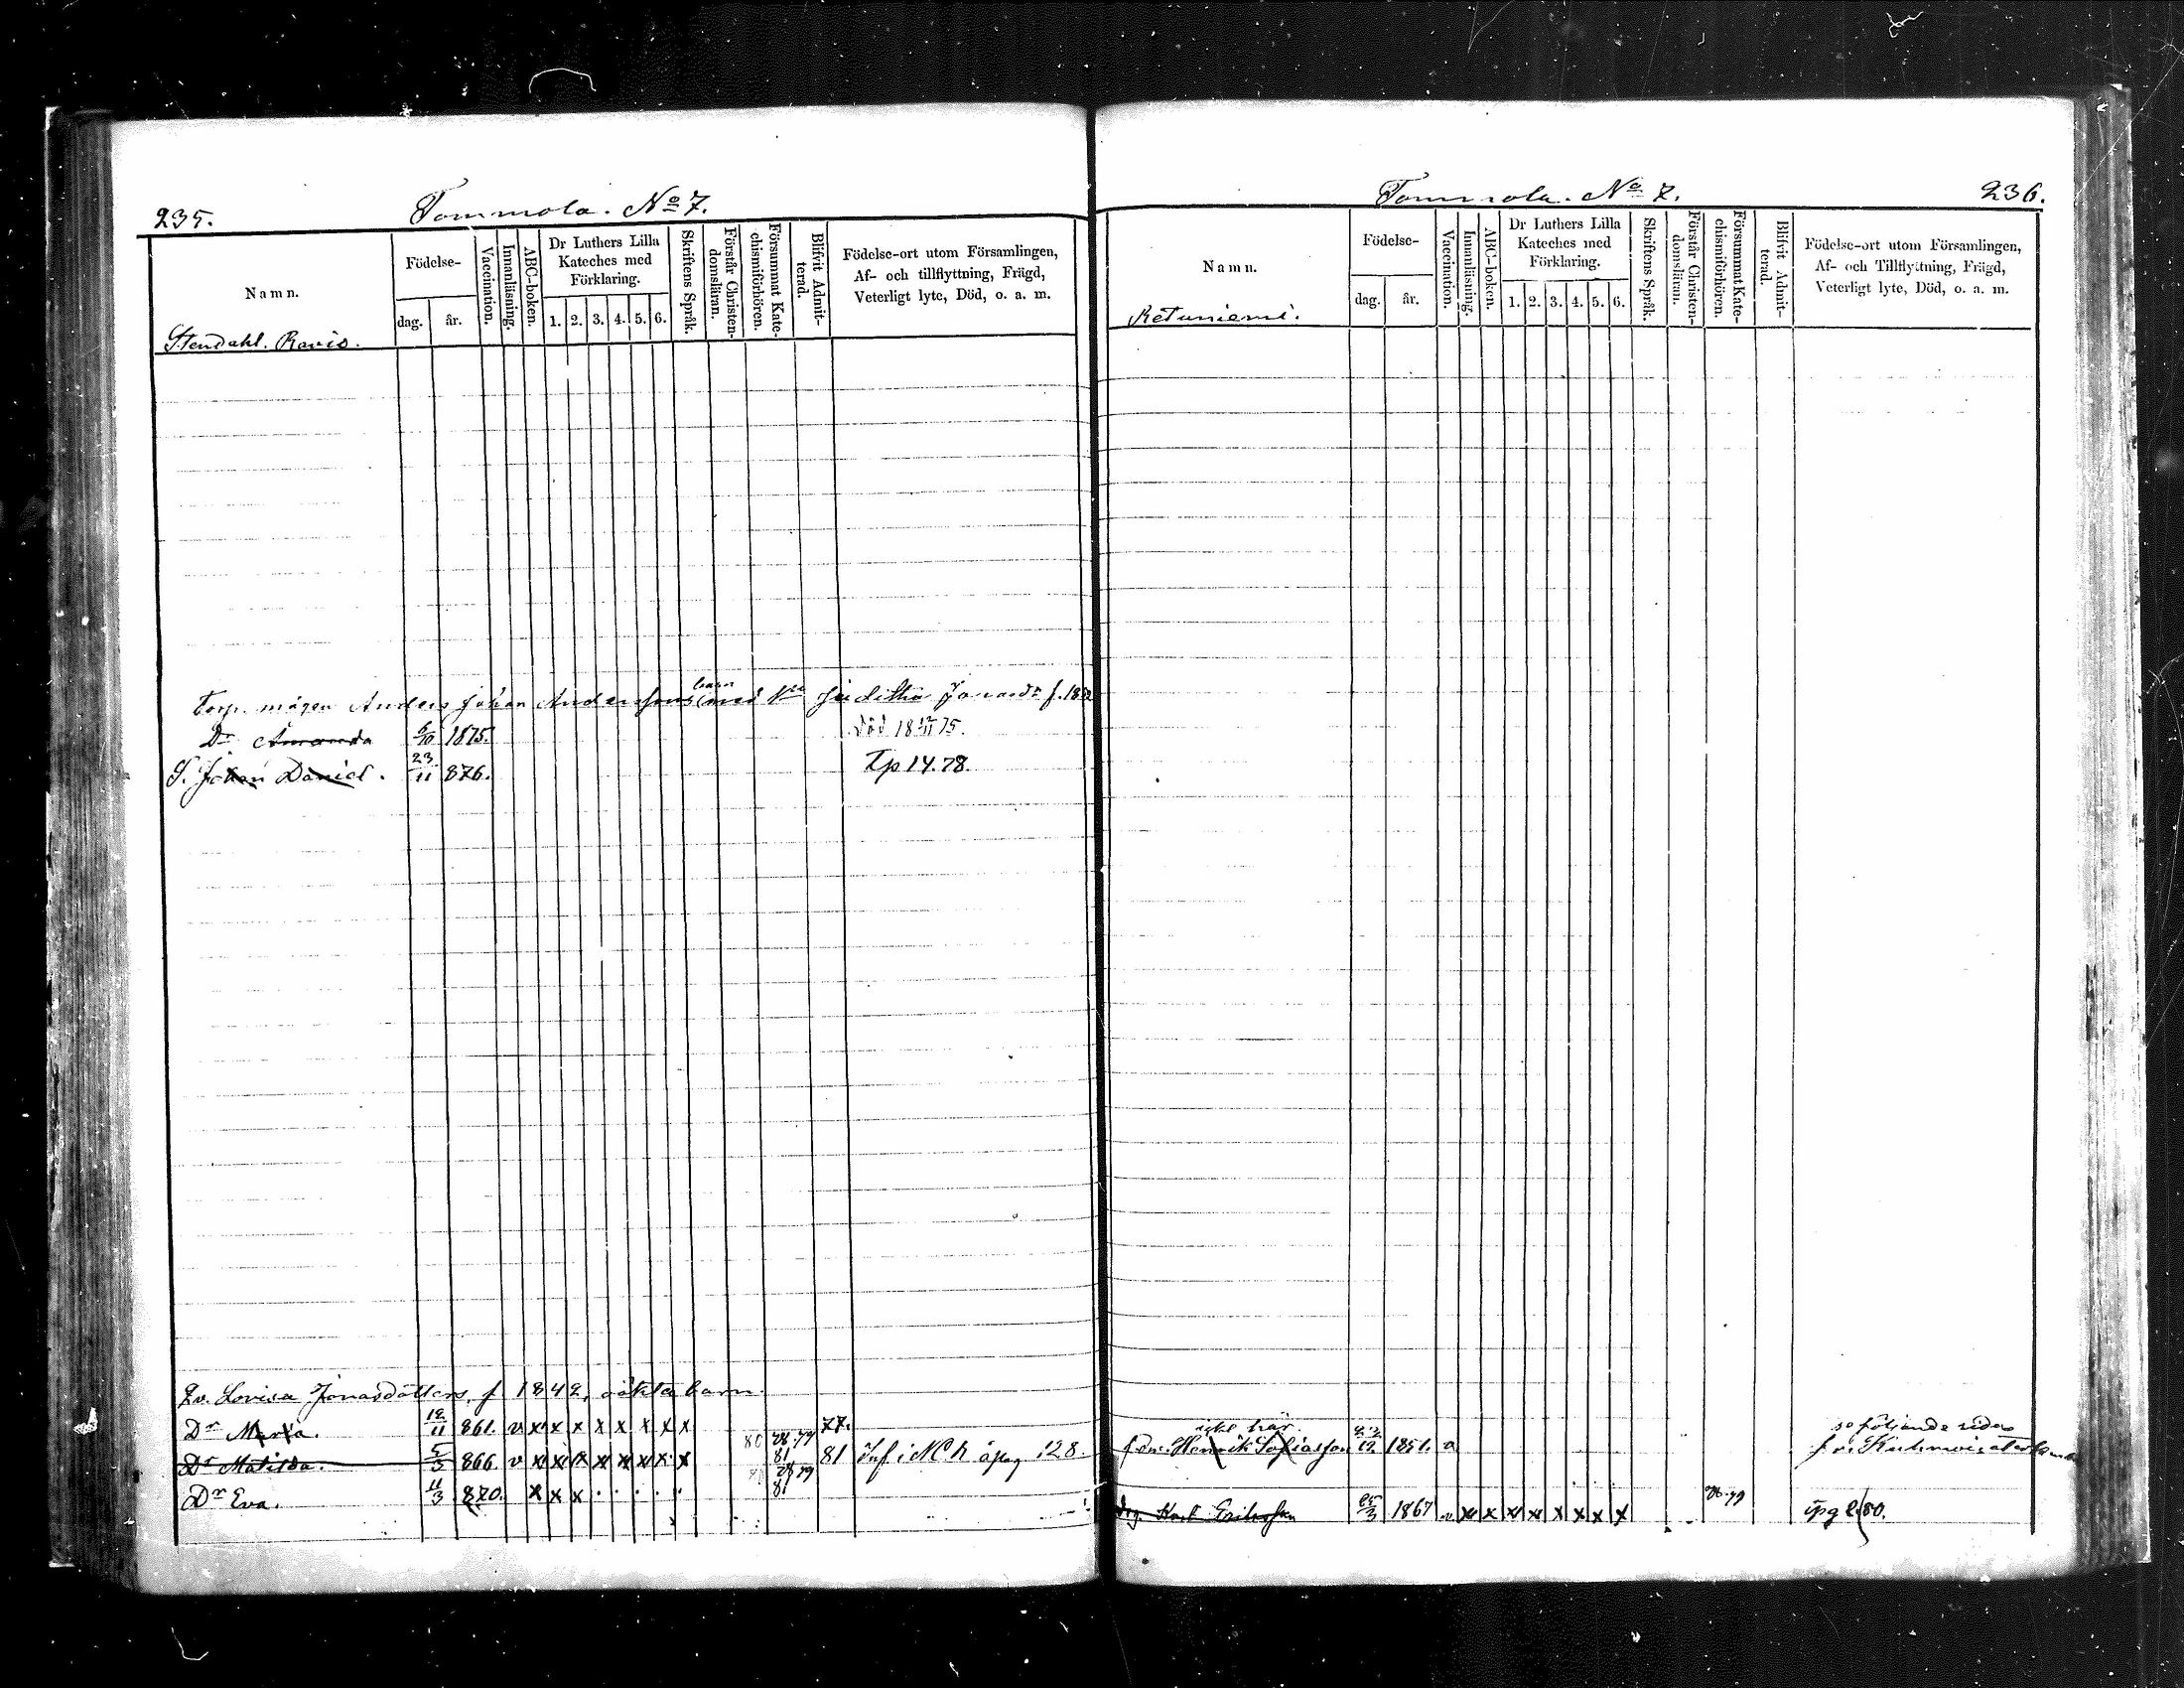 235.
Tommola. No 7.
Namn.
Födelse-
dag. år.
Vaccination.
Innanläsning.
ABC-boken.
Dr Luthers Lilla Kateches med Förklaring.
1. 2. 3. 4. 5. 6.
Skriftens Språk.
Förstår Christen-domsläran.
Försummat Kate-chismiförhören.
Blifvit Admit-terad.
Födelse-ort utom Församlingen,
Af- och tillflyttning, Frägd,
Veterligt lyte, Död, o. a. m.
Stendahl. Ravio.
Torp. mågen Anders Johan Anderssons barn (med Judith Jonasdr f. 18
Dr Amanda 6/10 1875. död 18 12/11 75.
S. Johan Daniel. 23/11 876. Tp 14.78.
Qv. Lovisa Jonasdotters, f 1842, oäkta barn
Dr Maria. 12/11 861. v x x x x x x x x 80 78.79 77.
Dr Matilda. 5/5 866. v x x x x x x x x 81 78 79 81 Inf i N.C h å pag 128.
Dr Eva. 11/3 870. x x x . . . . . 81
Tommola. No 7.
236.
Namn.
Födelse-
dag. år.
Vaccination.
Innanläsning.
ABC-boken.
Dr Luthers Lilla Kateches med Förklaring.
1. 2. 3. 4. 5. 6.
Skriftens Språk.
Förstår Christen-domsläran.
Försummat Kate-chismiförhören.
Blifvit Admit-terad.
Födelse-ort utom Församlingen,
Af- och Tillflyttning, Frägd,
Veterligt lyte, Död, o. a. m.
Retuniemi.
icke här. se följande sida
Henrik Sofiasson 12 1851.
Karl Eriksson 25/3 1867 v x x x x x x x x 78.79